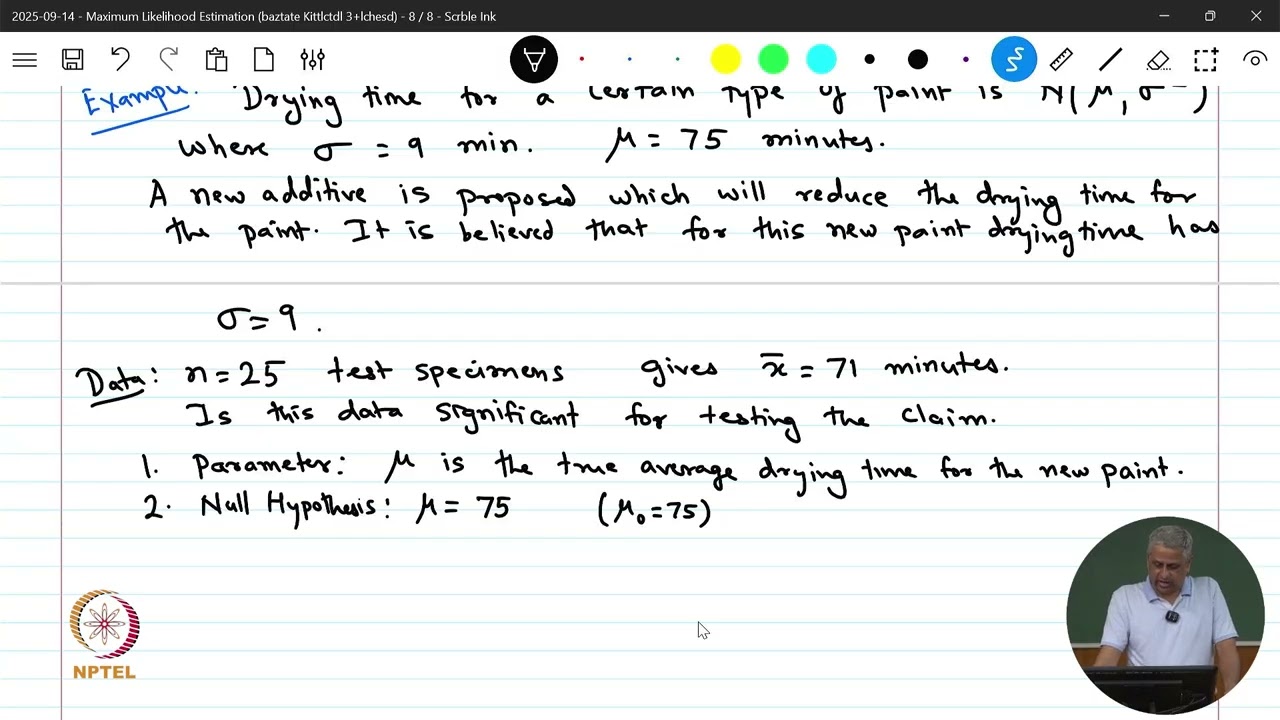 2025-09-14 - Maximum Likelihood Estimation (baztate Kittlctdl 3+lchesd) - 8 / 8 - Scrble Ink
Exampu. Drying time for a certain type of paint is N(μ, σ²)
where σ = 9 min. μ = 75 minutes.
A new additive is proposed which will reduce the drying time for
the paint. It is believed that for this new paint drying time has
σ = 9.
Data: n = 25 test specimens gives x̄ = 71 minutes.
Is this data significant for testing the claim.
1. Parameter: μ is the true average drying time for the new paint.
2. Null Hypothesis: μ = 75 (μ₀ = 75)
NPTEL